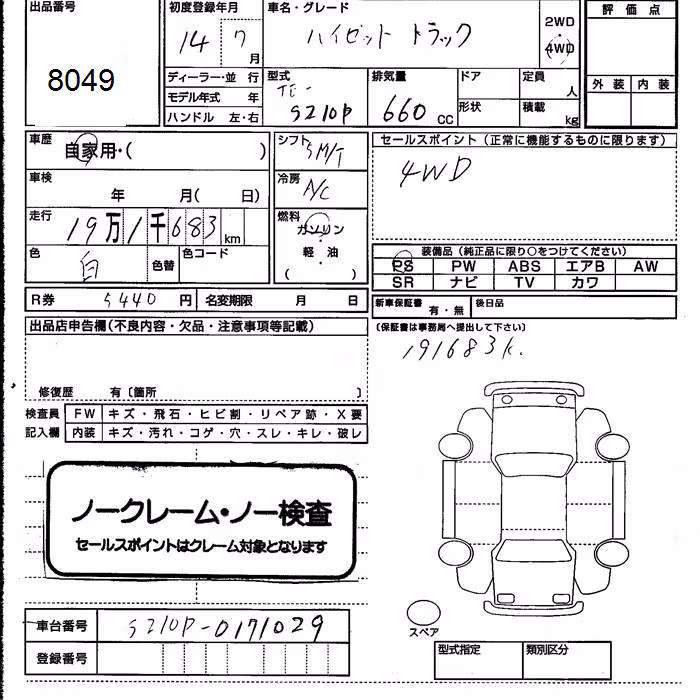 出品番号
8049
初度登録年月
14 7 月
車名・グレード
ハイゼット トラック
2WD
4WD
評価点
外装 内装
ディーラー・並 行
モデル年式 年
ハンドル 左・右
型式
TE-
S210P
排気量
660 CC
ドア
形状
定員
人
積載
kg
車歴
自家用・( )
シフト
5M/T
セールスポイント (正常に機能するものに限ります)
4WD
車検
年 月( 日)
冷房
A/C
走行
19万1千683 km
燃料
ガソリン
軽・油
( )
色
白
色替
色コード
装備品 (純正品に限り○をつけてください)
PS PW ABS エアB AW
SR ナビ TV カワ
R券 5440 円
名変期限 月 日
新車保証書 有・無
後日品
(保証書は事務局へ提出して下さい)
191683k.
出品店申告欄(不良内容・欠品・注意事項等記載)
修復歴 有〔箇所 〕
検査員記入欄
FW キズ・飛石・ヒビ割・リペア跡・X要
内装 キズ・汚れ・コゲ・穴・スレ・キレ・破レ
ノークレーム・ノー検査
セールスポイントはクレーム対象となります
車台番号 S210P-0171029
登録番号
スペア
型式指定 類別区分